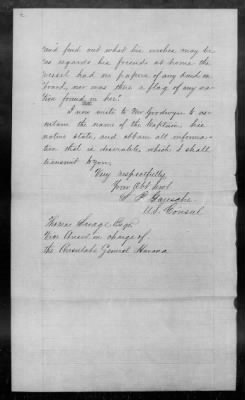 and find out what his wishes may be
as regards his friends at home the
vessel had no papers of any kind on
board, nor was there a flag of any na-
tion found in her.
I now write to Mr Goodwyn to as-
certain the name of the Captain his
native state, and obtain all informa-
tion that is desirable, which I shall
transmit to you,
Very respectfully
Your Obt Servt
U.S. Consul
Thomas Savage Esqr
Vice Consul in charge of
the Consulate General Havana